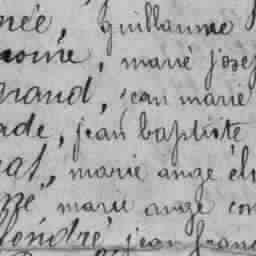 née, guillaume
oine, marié josep
raud, jean marie
ade, jean baptiste
eal, marie ange éli
zze, marie ange con
londré, jean franc